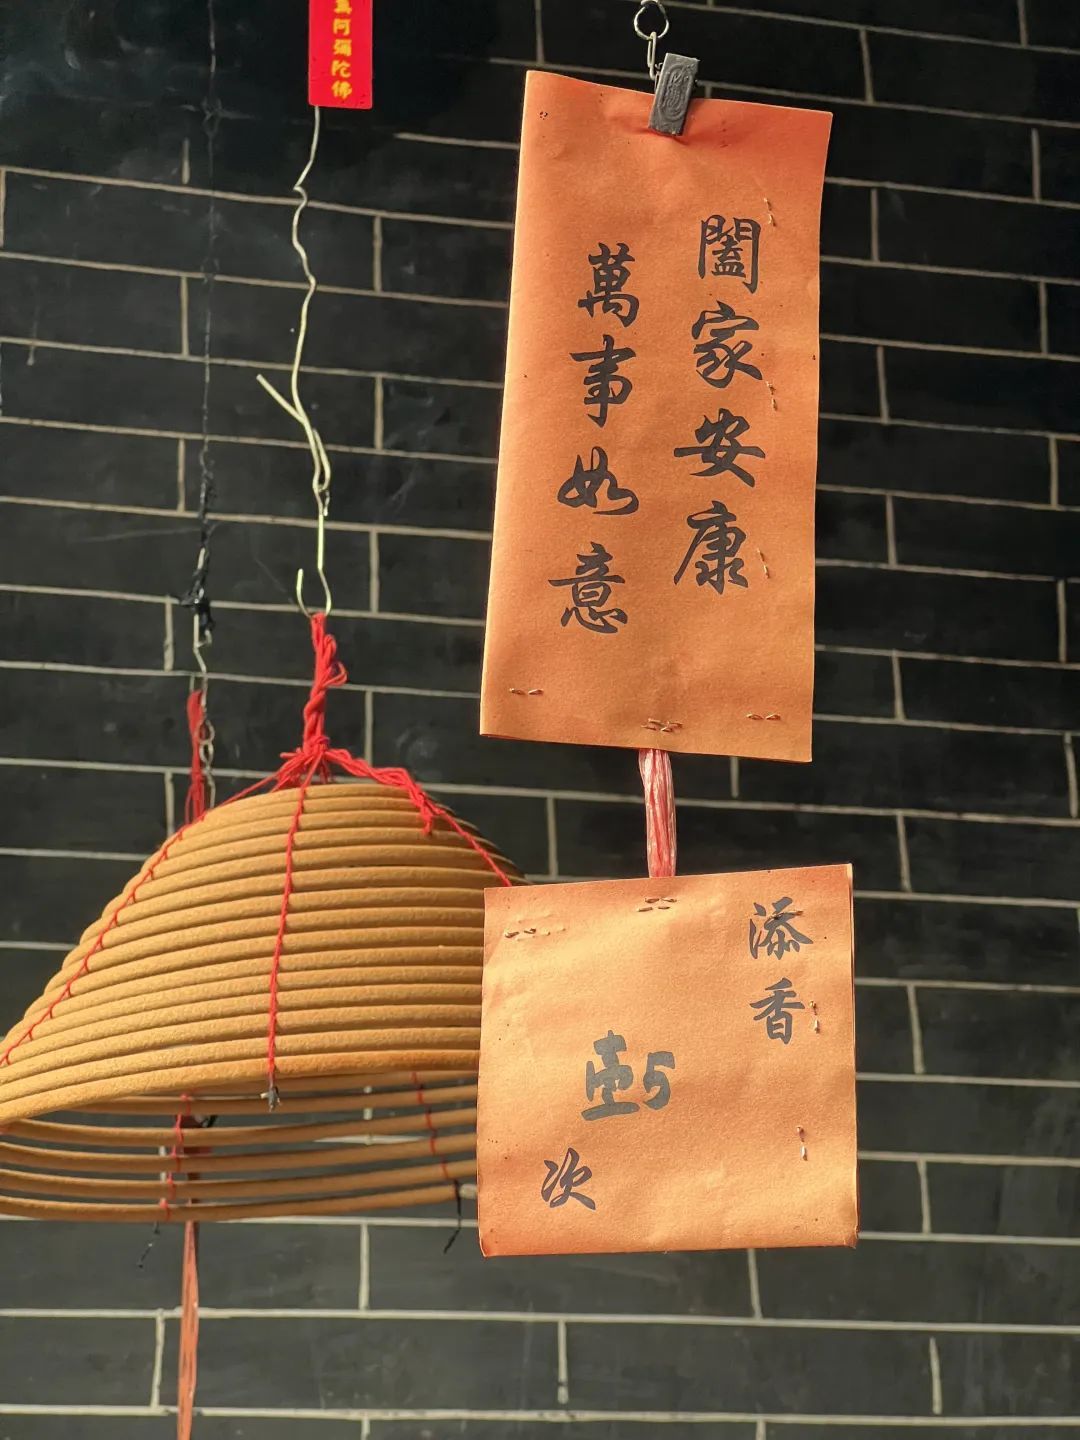 阿彌陀佛
闔家安康
萬事如意
添香
次